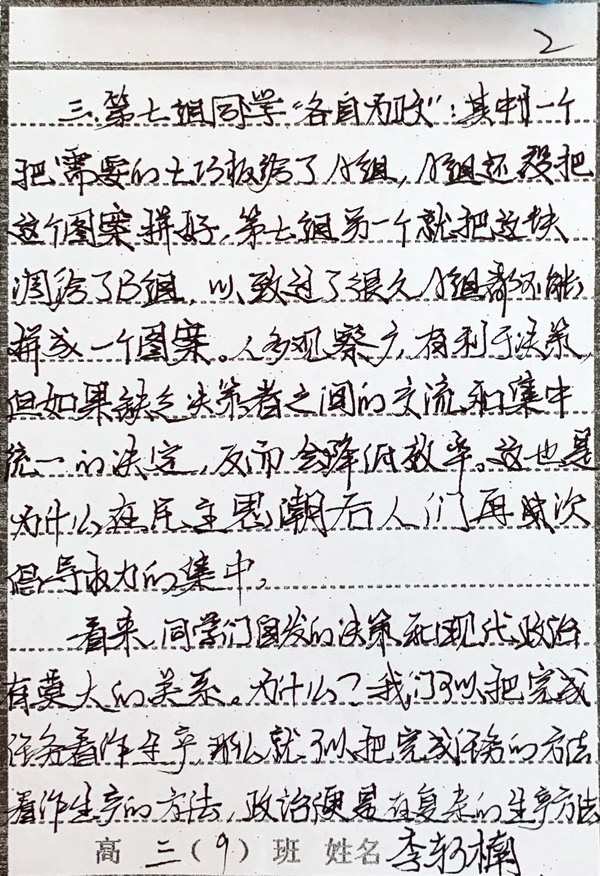 2
三.第七组同学“各自为政”：其中一个
把需要的七巧板给了A组，A组还没把
这个图案拼好，第七组另一个就把这块
调给了B组，以致过了很久A组都不能
拼成一个图案。人多观察广，有利于决策，
但如果缺乏决策者之间的交流和集中
统一的决定，反而会降低效率。这也是
为什么在民主思潮后人们再次
倡导权力的集中。
看来，同学们自发的决策和现代政治
有莫大的关系。为什么？我们可以把完成
任务看作生产，那么就可以把完成任务的方法
看作生产的方法，政治便是在复杂的生产方法
高二（9）班 姓名李轲楠